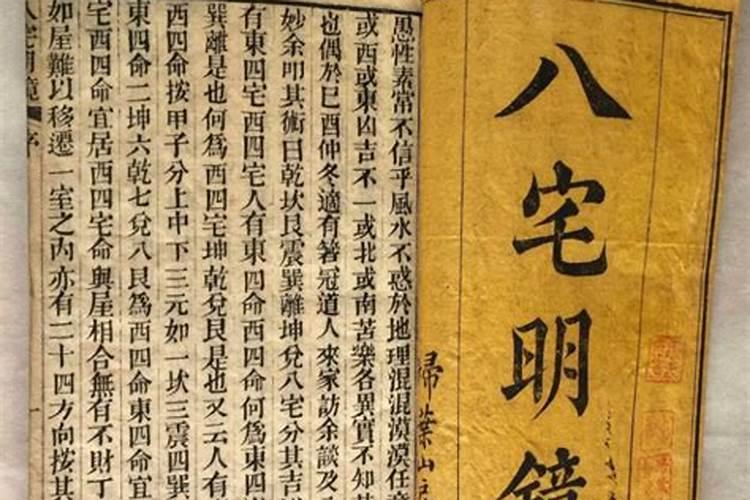 八宅明鏡
掃葉山
愚性素常不信乎風水不惑於地理混混漠漠任意
或西或東凶吉不一或北或南苦樂各異實不知其
也偶於巳酉仲冬適有箬冠道人來家訪余談及
妙余叩其術曰乾坎艮震巽離坤兌八宅分其吉
有東四宅西四宅人有東四命西四命何爲東四
巽離是也何爲西四宅坤乾兌艮是也又云人有
西四命按甲子分上中下三元如一坎三震四巽
東四命二坤六乾七兌八艮爲西四命東四命宜
宅西四命宜居西四宅命與屋相合無有不財丁
如屋難以移遷一室之內亦有二十四方向按其
八宅明鏡 序 一